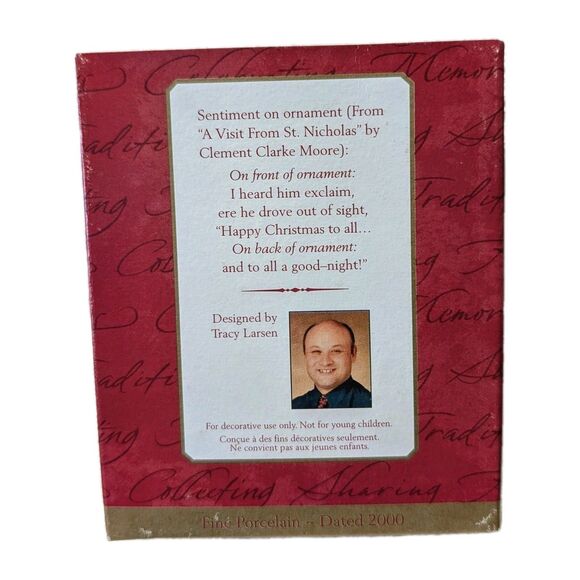 Celebrating Memor
Sentiment on ornament (From
“A Visit From St. Nicholas” by
Clement Clarke Moore):
On front of ornament:
I heard him exclaim,
ere he drove out of sight,
“Happy Christmas to all…
On back of ornament:
and to all a good–night!”
Designed by
Tracy Larsen
For decorative use only. Not for young children.
Conçue à des fins décoratives seulement.
Ne convient pas aux jeunes enfants.
Collecting Sharing
Fine Porcelain ~ Dated 2000